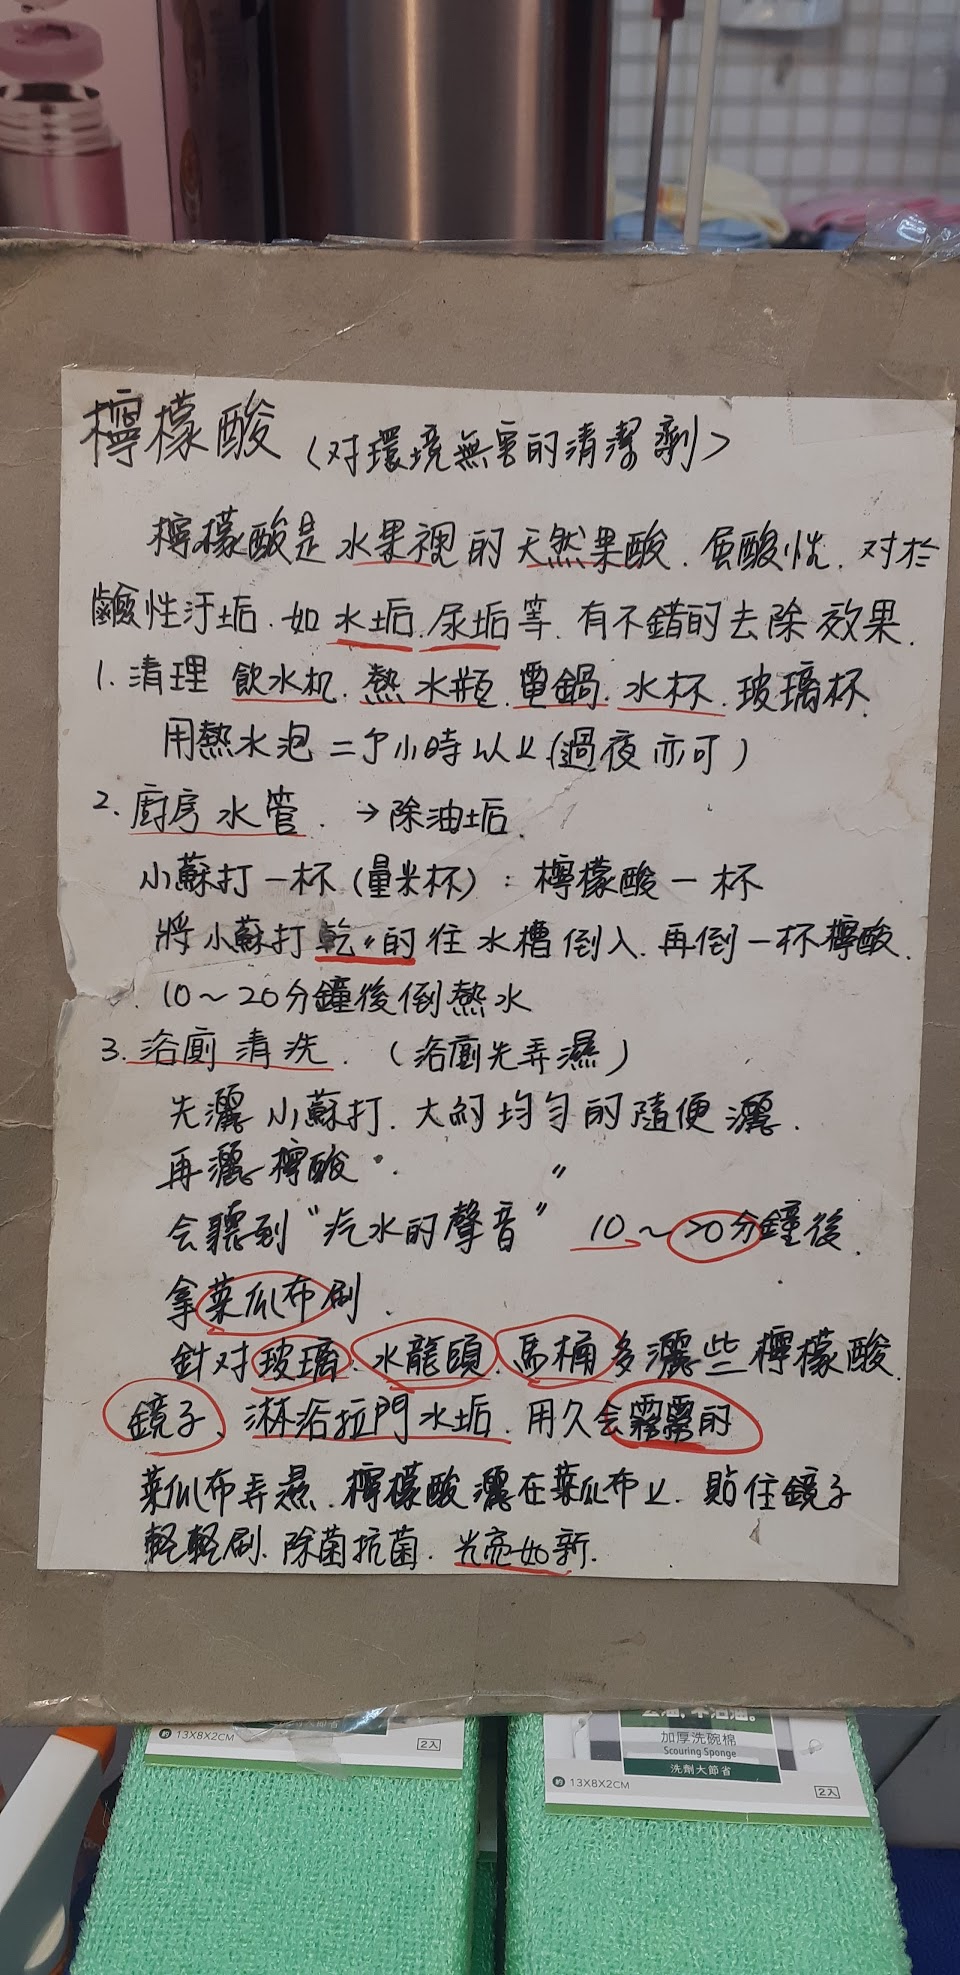 檸檬酸(对環境無害的清潔劑)
檸檬酸是水果裡的天然果酸.屬酸性.对於
鹹性汙垢.如水垢.尿垢等.有不錯的去除效果.
1.清理飲水机.熱水瓶.電鍋.水杯.玻璃杯.
用熱水泡二个小時以上(過夜亦可)
2.廚房水管.→除油垢.
小蘇打一杯(量米杯):檸檬酸一杯
將小蘇打乾〃的往水槽倒入.再倒一杯檸酸.
10~20分鐘後倒熱水
3.浴廁清洗.(浴廁先弄濕)
先灑小蘇打.大約均勻的隨便灑.
再灑檸酸. 〃
会聽到"汽水的聲音" 10~20分鐘後.
拿菜瓜布刷.
針对玻璃.水龍頭.馬桶多灑些檸檬酸.
鏡子、淋浴拉門水垢.用久会霧霧的
菜瓜布弄濕.檸檬酸灑在菜瓜布上.貼住鏡子
輕輕刷.除菌抗菌.光亮如新.
13X8X2CM
2入
加厚洗碗棉
Scouring Sponge
洗劑大節省
約 13X8X2CM
2入